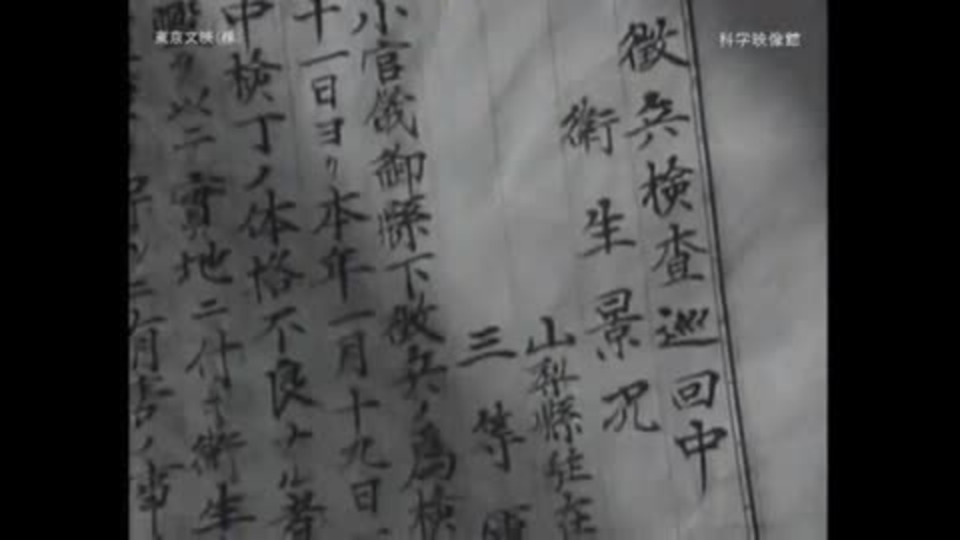 東京文映(株
科学映像館
徴兵検査巡回中
衛生景況
山梨縣駐在
三等
小官儀御縣下徴兵ノ為検
十一日ヨリ本年一月十九日
中検丁ノ体格不良ナル者
ヲ以ニ實地ニ付キ衛生